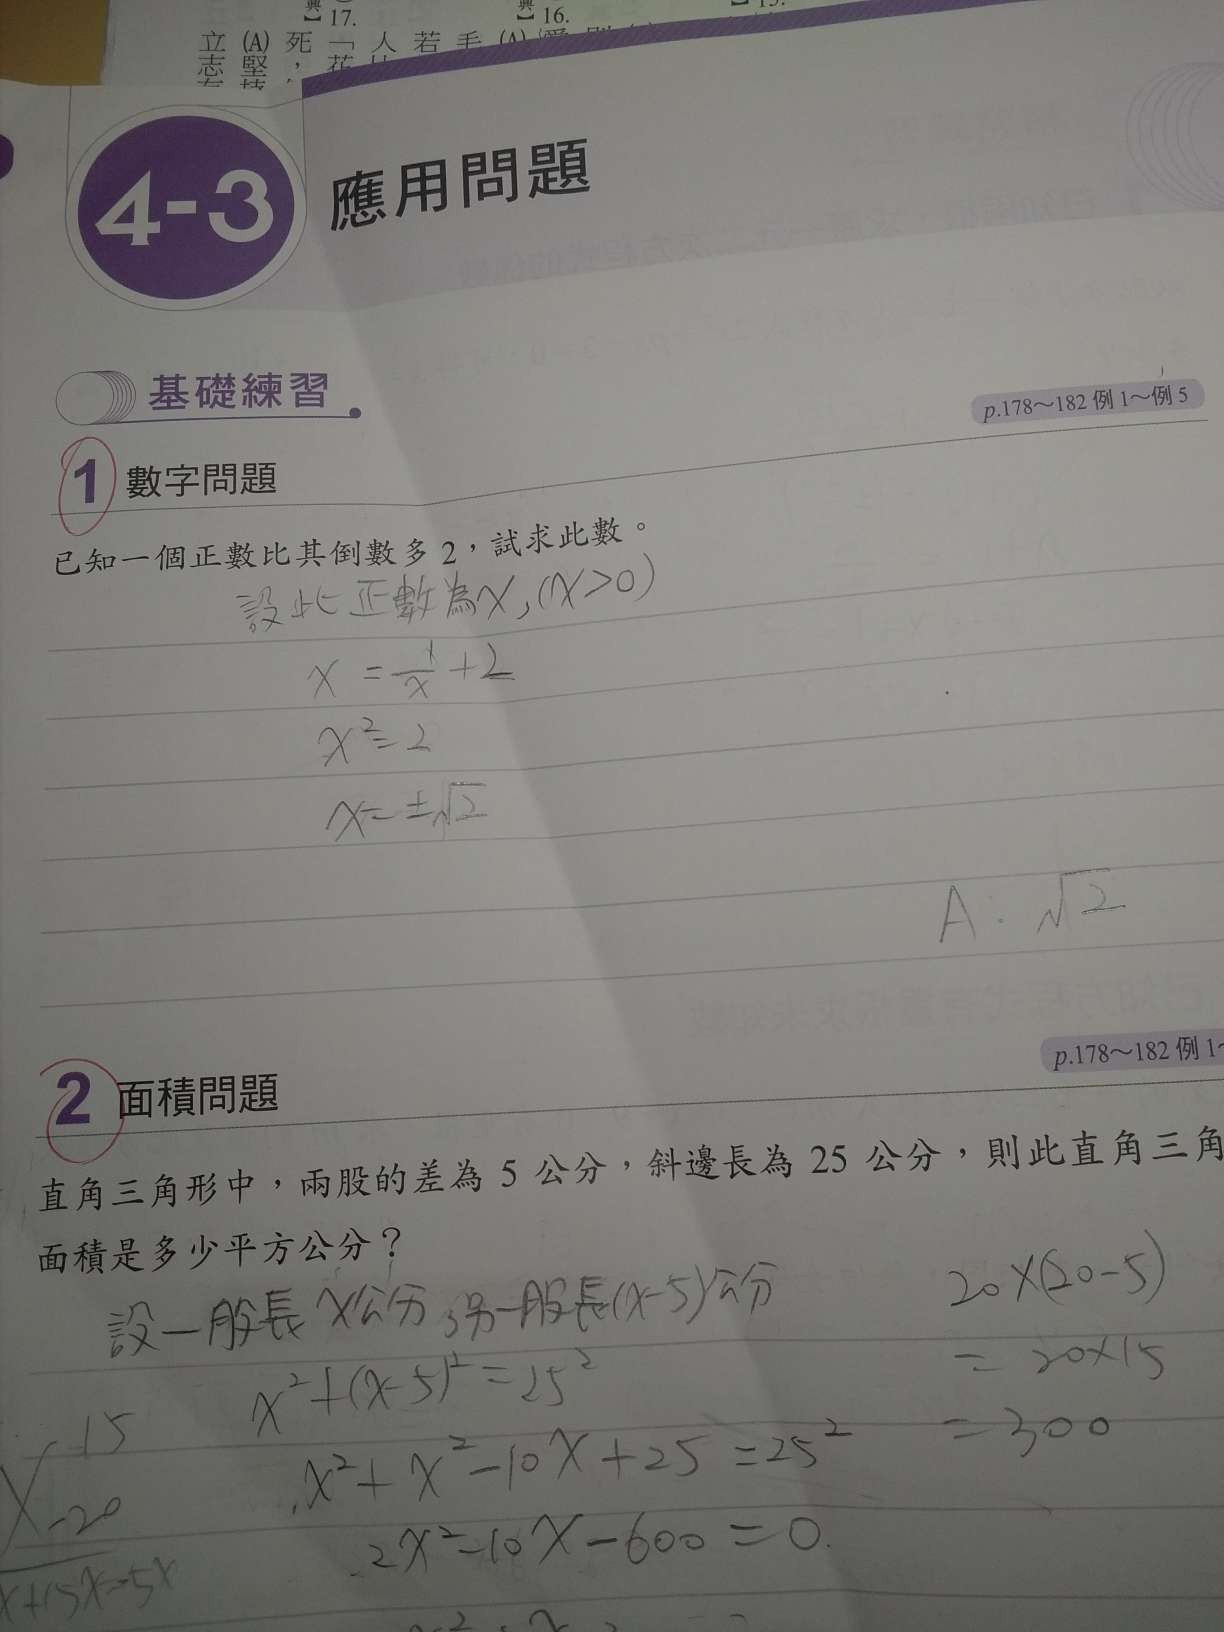 17.
16.
立 (A) 死 「 人 若 手 (A)
志 堅 ， 花
4-3 應用問題
基礎練習
p.178～182 例 1～例 5
1 數字問題
已知一個正數比其倒數多 2，試求此數。
設此正數為x,(x>0)
x = 1/x + 2
x²=2
x=±√2
A: √2
p.178～182 例 1~
2 面積問題
直角三角形中，兩股的差為 5 公分，斜邊長為 25 公分，則此直角三角
面積是多少平方公分？
設一股長 x公分,另一股長(x-5)公分
20×(20-5)
x²+(x-5)²=25²
=20×15
-15
x²+x²-10x+25=25²
=300
-20
2x²-10x-600=0
x+15x=5x